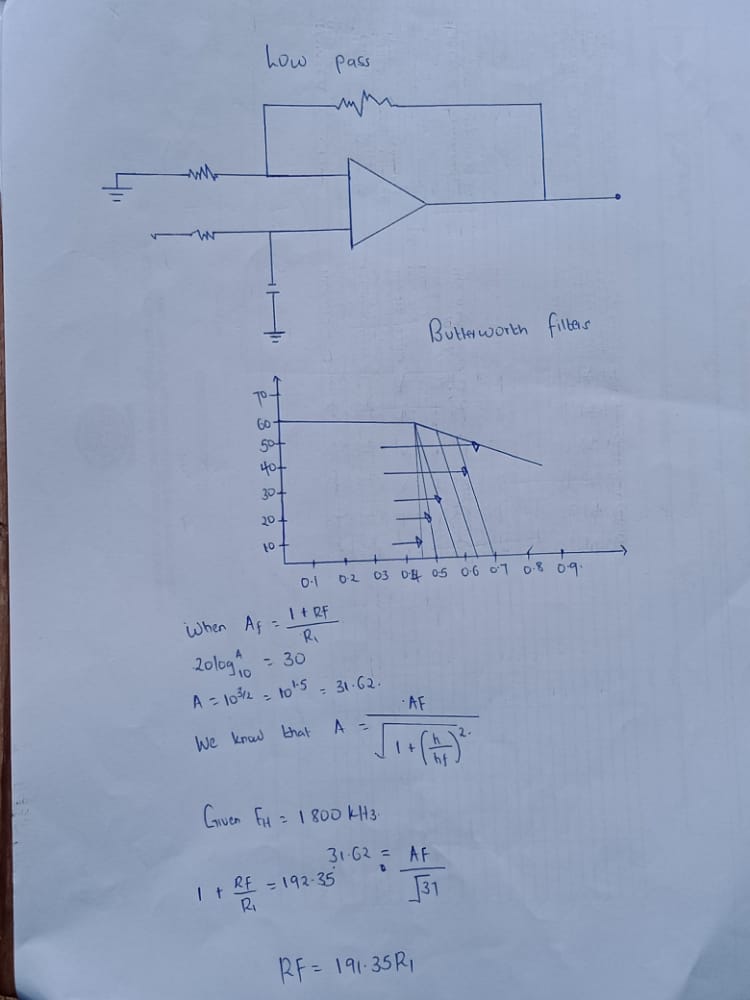 Low pass
Butterworth filters
70
60
50
40
30
20
10
0.1 0.2 03 0.4 0.5 0.6 0.7 0.8 0.9.
When Af = 1 + RF / R1
20log A 10 = 30
A = 10^3/2 = 10^1.5 = 31.62.
We know that A = AF / √1 + (h/hf)^2.
Given FH = 1800 kHz.
31.62 = AF / √37
1 + RF/R1 = 192.35
RF = 191.35R1